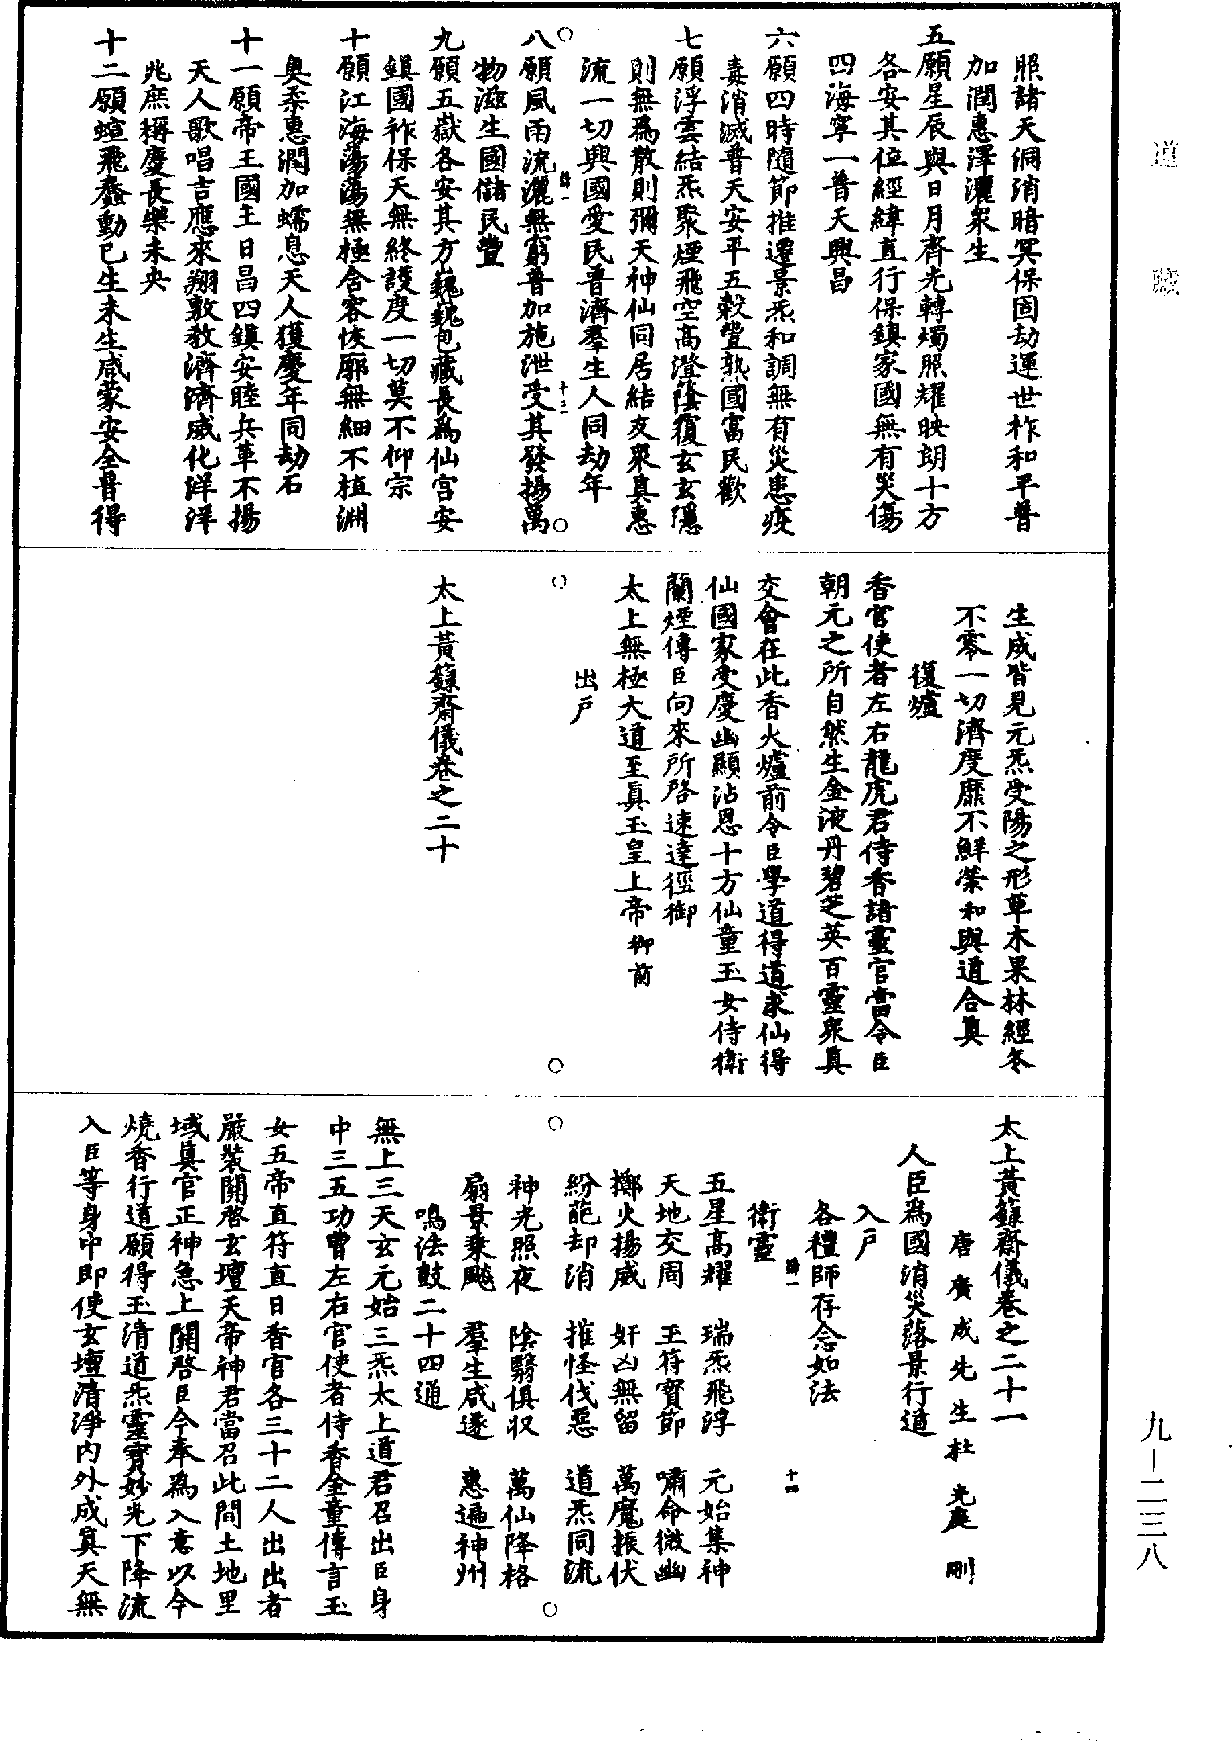 道藏
照諸天洞消暗冥保固劫運世柞和平普
加潤惠澤灑衆生
五願星辰與日月齊光轉燭照耀映朗十方
各安其位經緯直行保鎮家國無有災傷
四海寧一普天興昌
六願四時隨節推遷景炁和調無有災患疫
毒消滅普天安平五穀豐熟國富民歡
七願浮雲結炁聚煙飛空高澄蔭覆玄玄隱
則無爲散則彌天神仙同居結友衆真惠
流一切興國愛民普濟羣生人同劫年
八願風雨流灑無窮普加施泄受其發揚萬
物滋生國儲民豐
九願五嶽各安其方巍巍包藏長爲仙宮安
鎮國祚保天無終護度一切莫不仰宗
十願江海蕩蕩無極含容恢廓無細不植淵
奥黍惠潤加蠕息天人獲慶年同劫石
十一願帝王國主日昌四鎮安睦兵革不揚
天人歌唱吉應來翔敷教濟濟威化洋洋
兆庶稱慶長樂未央
十二願蝖飛蠢動已生未生咸蒙安全普得
生成皆見元炁受陽之形草木果林經冬
不零一切濟度靡不鮮榮和與道合真
復爐
香官使者左右龍虎君侍香諸靈官當令臣
朝元之所自然生金液丹碧芝英百靈衆真
交會在此香火爐前令臣學道得道求仙得
仙國家受慶幽顯沾恩十方仙童玉女侍衛
蘭煙傳臣向來所啓速達徑御
太上無極大道至真玉皇上帝御前
出戶
太上黃籙齋儀卷之二十
太上黃籙齋儀卷之二十一
唐廣成先生杜光庭刪
人臣為國消災落景行道
入戶
各禮師存念如法
衛靈
五星高耀 瑞炁飛浮 元始集神
天地交周 玉符寶節 嘯命微幽
擲火揚威 奸凶無留 萬魔振伏
紛葩却消 摧怪伐惡 道炁同流
神光照夜 陰翳俱収 萬仙降格
扇景乘飈 羣生咸遂 惠遍神州
鳴法鼓二十四通
無上三天玄元始三炁太上道君召出臣身
中三五功曹左右官使者侍香金童傳言玉
女五帝直符直日香官各三十二人出出者
嚴裝關啓玄壇天帝神君當召此間土地里
域真官正神急上關啓臣今奉為入意以今
燒香行道願得玉清道炁靈寶妙光下降流
入臣等身中即使玄壇清淨内外成真天無
九－二三八